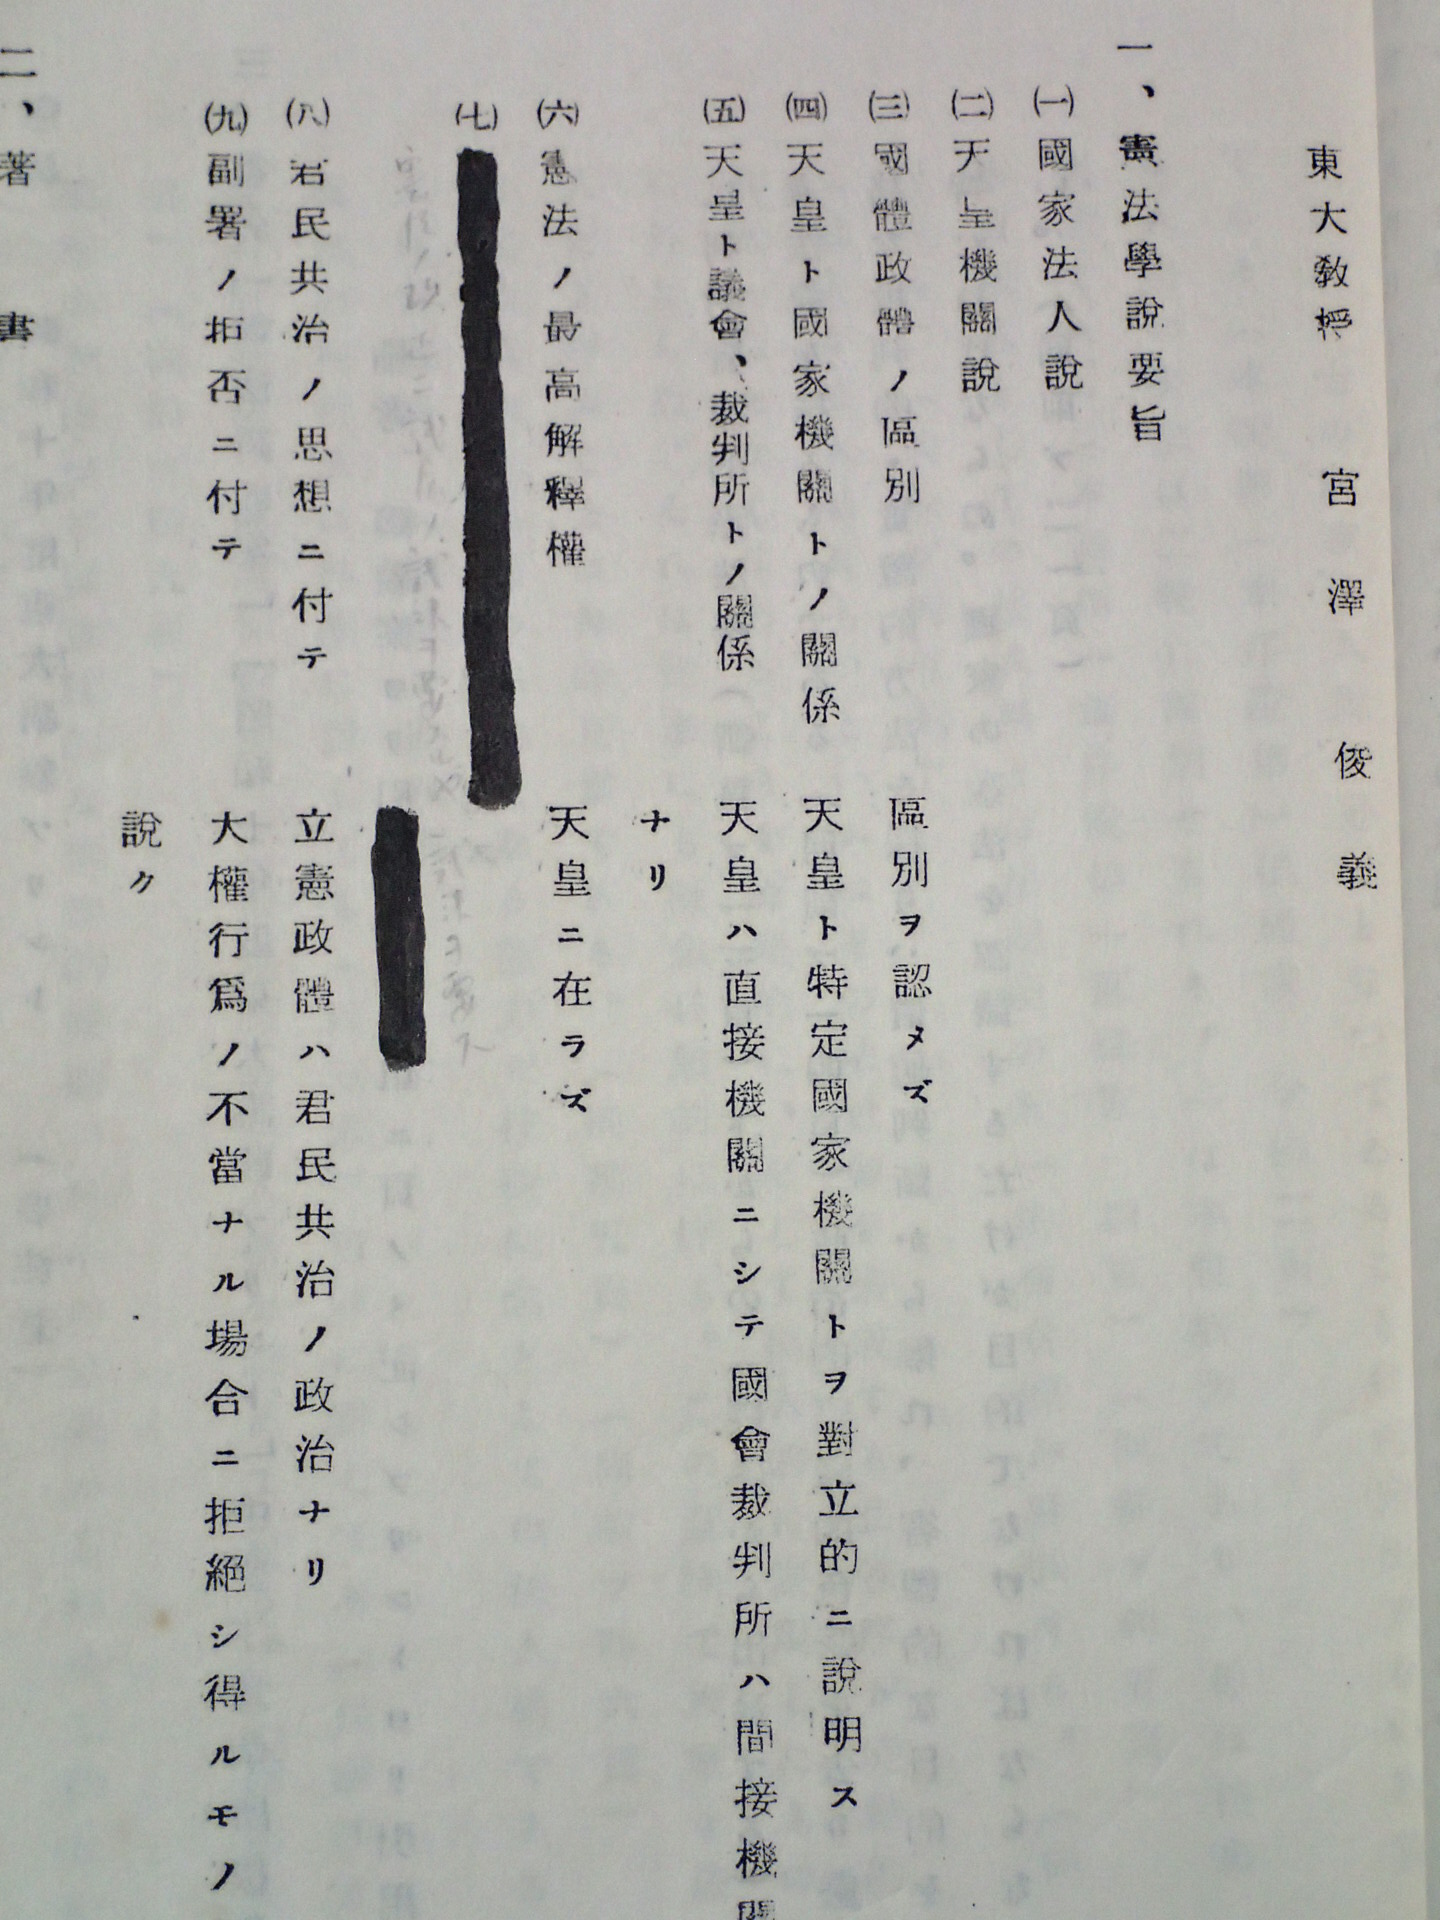 東大教授 宮澤俊義
一、憲法學說要旨
㈠ 國家法人說
㈡ 天皇機關說
㈢ 國體政體ノ區別 區別ヲ認メズ
㈣ 天皇ト國家機關トノ關係 天皇ト特定國家機關トヲ對立的ニ說明ス
㈤ 天皇ト議會、裁判所トノ關係 天皇ハ直接機關ニシテ國會裁判所ハ間接機關
ナリ
㈥ 憲法ノ最高解釋權 天皇ニ在ラズ
㈦
㈧ 君民共治ノ思想ニ付テ 立憲政體ハ君民共治ノ政治ナリ
㈨ 副署ノ拒否ニ付テ 大權行爲ノ不當ナル場合ニ拒絕シ得ルモノ
說ク
二、著書